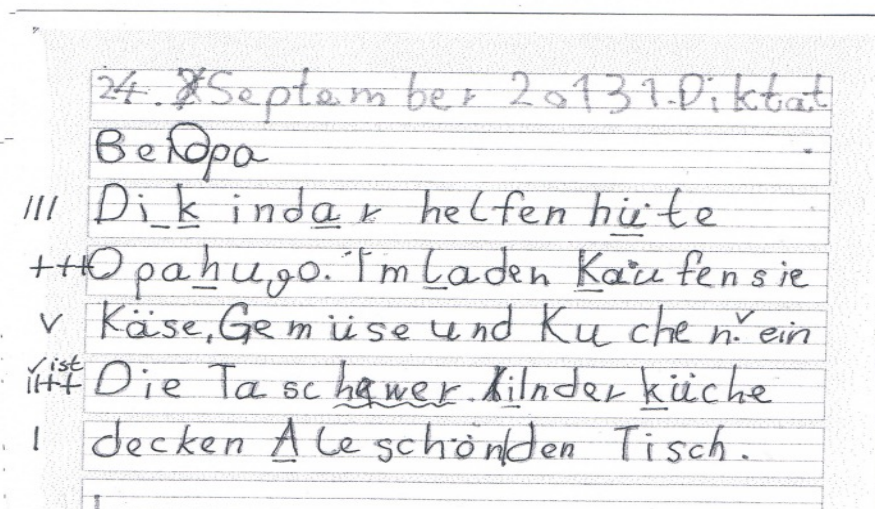 24. September 2013 1. Diktat
Bei Opa
/// Di kindar helfen hüte
+++ Opa hugo. Im Laden Kaufen sie
V Käse, Gemüse und Kuchen. ein
ist
Die Taschewer. kinder küche
| decken Ale schön den Tisch.